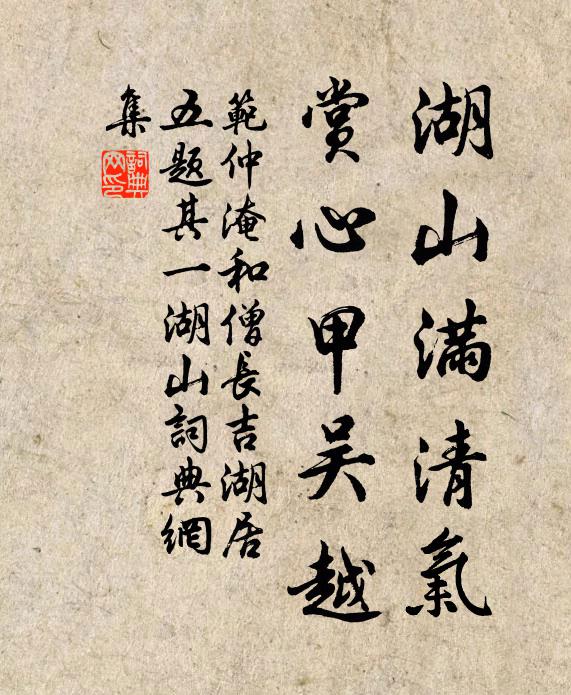 湖山滿清氣
賞心甲吴越
範仲淹和僧長吉湖居
五题其一湖山詞典網
集
詞典網印